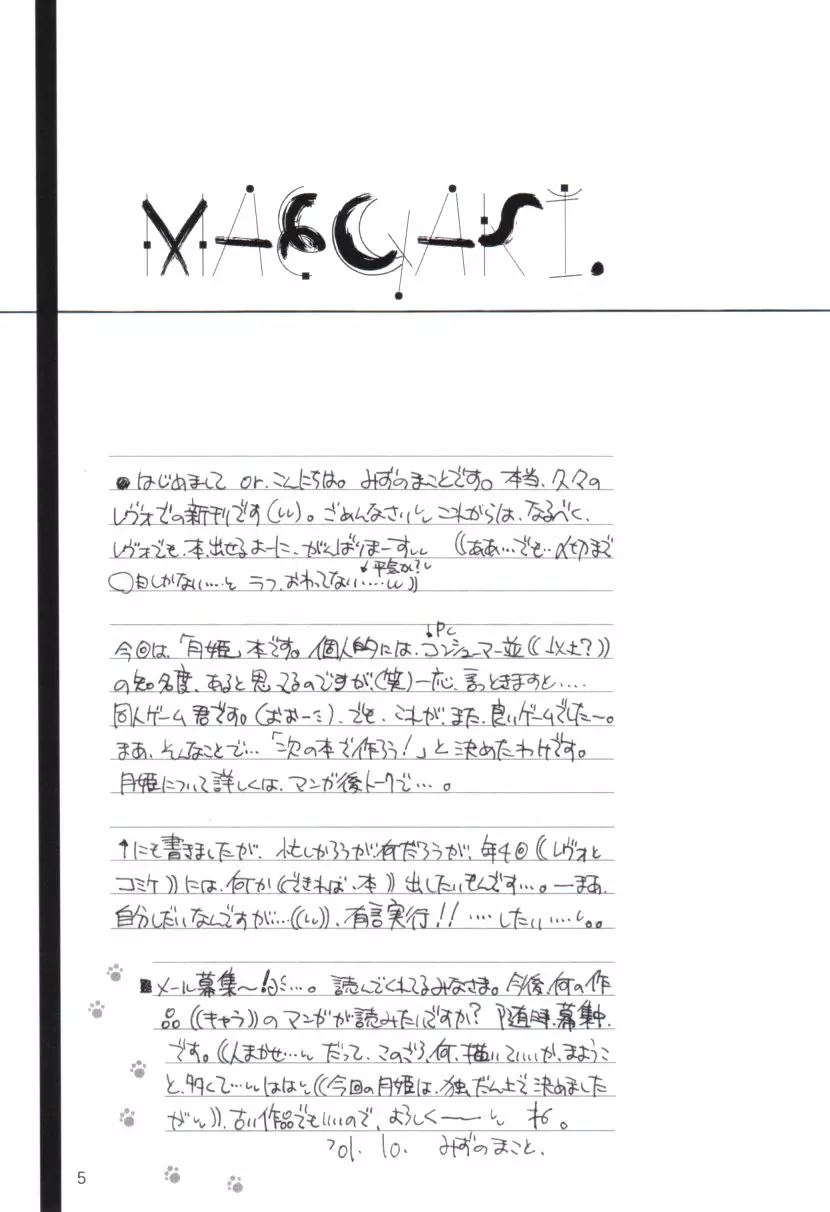 MAEGAKI.
●はじめまして or. こんにちは。みずのまことです。本当、久々の
レヴォでの新刊です(しし)。ごめんなさいしし これからは、なるべく、
レヴォでも、本、出せるよーに、がんばりまーすしし ((ああ…でも…〆切まで
↓平気か?し
〇日しかない…・と ラフ、おわってない・・・・しし))
↓PC
今回は、「月姫」本です。個人的には、コンシューマー並((以上?))
の知名度、あると思ってるのですが、(笑)一応、言っときますと・・・・
同人ゲーム君です。(おおーミ)、でも、これが、また、良いゲームでした〜。
まあ、そんなことで…「次の本で作ろう!」と決めたわけです。
月姫について詳しくは、マンガ後トークで…。
↑にも書きましたが、忙しかろうが何だろうが、年4回((レヴォと
コミケ))には、何か((できれば、本))出したいもんです…。ーまあ、
自分しだいなんですが…((しし))、有言実行!! ・・・・したい・・・・し。。
■メール募集〜!・・・。読んでくれてるみなさま。今後、何の作
品((キャラ))のマンガが読みたいですか? 随時、募集中、
です。((人まかせ…しし だって、このごろ、何、描いていいか、まようこ
と、多くて…しし ははし((今回の月姫は、独だん上で決めました
がしし))、古い作品でもいいので、よろしくーー しし ね。
'01. 10. みずのまこと、
5